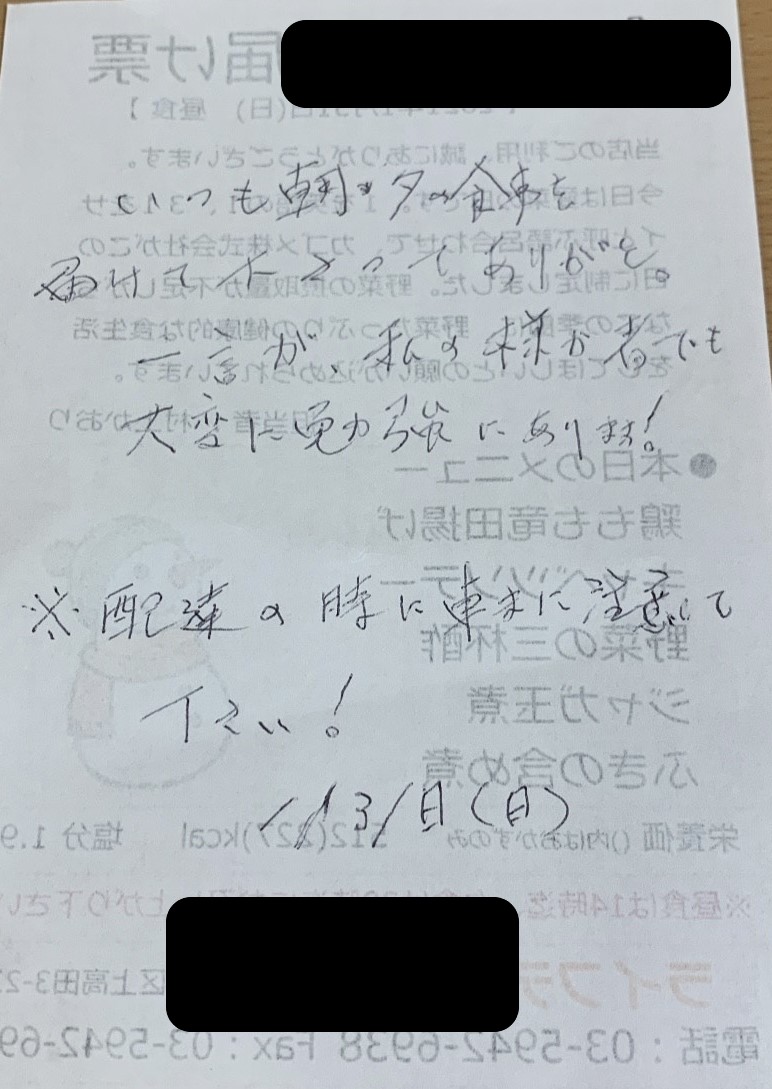 いつも朝・夕の食事を
届けて下さってありがとう。
一言が、私の様な者でも
大変に勉強になります!
※配達の時に車まに注意して
下さい!
1/31日(日)
届け票
(日) 昼食 】
当店のご利用、誠にありがとうございます。
今日は
カゴメ株式会社がこの
日に制定しました。野菜の摂取量が不足しが
野菜たっぷりの健康的な食生活
をしてほしいとの願いが込められています。
●本日のメニュー
鶏もも竜田揚げ
野菜の三杯酢
ジャガ玉煮
ふきの含め煮
栄養価 ()内はおかずのみ 512(227)kcal 塩分 1.9
※昼食は14時迄、 上がり下さい
ライフデ
区上高田3-2
電話:03-5942-6938 Fax:03-5942-69